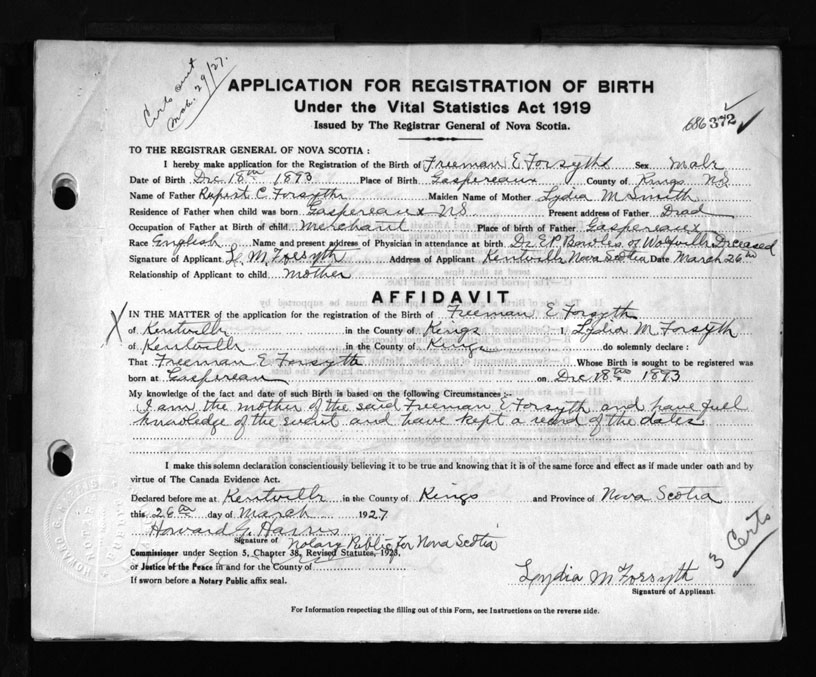 Certs out
Mar. 29/27.
APPLICATION FOR REGISTRATION OF BIRTH
Under the Vital Statistics Act 1919
Issued by The Registrar General of Nova Scotia.
686372
TO THE REGISTRAR GENERAL OF NOVA SCOTIA :
I hereby make application for the Registration of the Birth of Freeman E Forsythe Sex Male
Date of Birth Dec 18th 1893 Place of Birth Gaspereaux County of Kings NS
Name of Father Rupert C. Forsythe Maiden Name of Mother Lydia M Smith
Residence of Father when child was born Gaspereaux NS Present address of Father Dead
Occupation of Father at Birth of child Merchant Place of birth of Father Gaspereaux
Race English Name and present address of Physician in attendance at birth Dr E.P. Bowles of Wolfville Deceased
Signature of Applicant L. M. Forsyth Address of Applicant Kentville Nova Scotia Date March 26th
Relationship of Applicant to child mother
AFFIDAVIT
IN THE MATTER of the application for the registration of the Birth of Freeman E Forsyth
of Kentville in the County of Kings I, Lydia M Forsyth
of Kentville in the County of Kings do solemnly declare :
That Freeman E Forsyth Whose Birth is sought to be registered was
born at Gaspereau on Dec 18th 1893
My knowledge of the fact and date of such Birth is based on the following Circumstances :-
I am the mother of the said Freeman E Forsyth and have full
knowledge of the event and have kept a record of the dates
I make this solemn declaration conscientiously believing it to be true and knowing that it is of the same force and effect as if made under oath and by
virtue of The Canada Evidence Act.
Declared before me at Kentville in the County of Kings and Province of Nova Scotia
this 26th day of March 1927
Howard G. Harris
Signature of Notary Public for Nova Scotia
Commissioner under Section 5, Chapter 38, Revised Statutes, 1923.
or Justice of the Peace in and for the County of
If sworn before a Notary Public affix seal.
3 Certs
Lydia M Forsyth
Signature of Applicant.
For Information respecting the filling out of this Form, see Instructions on the reverse side.